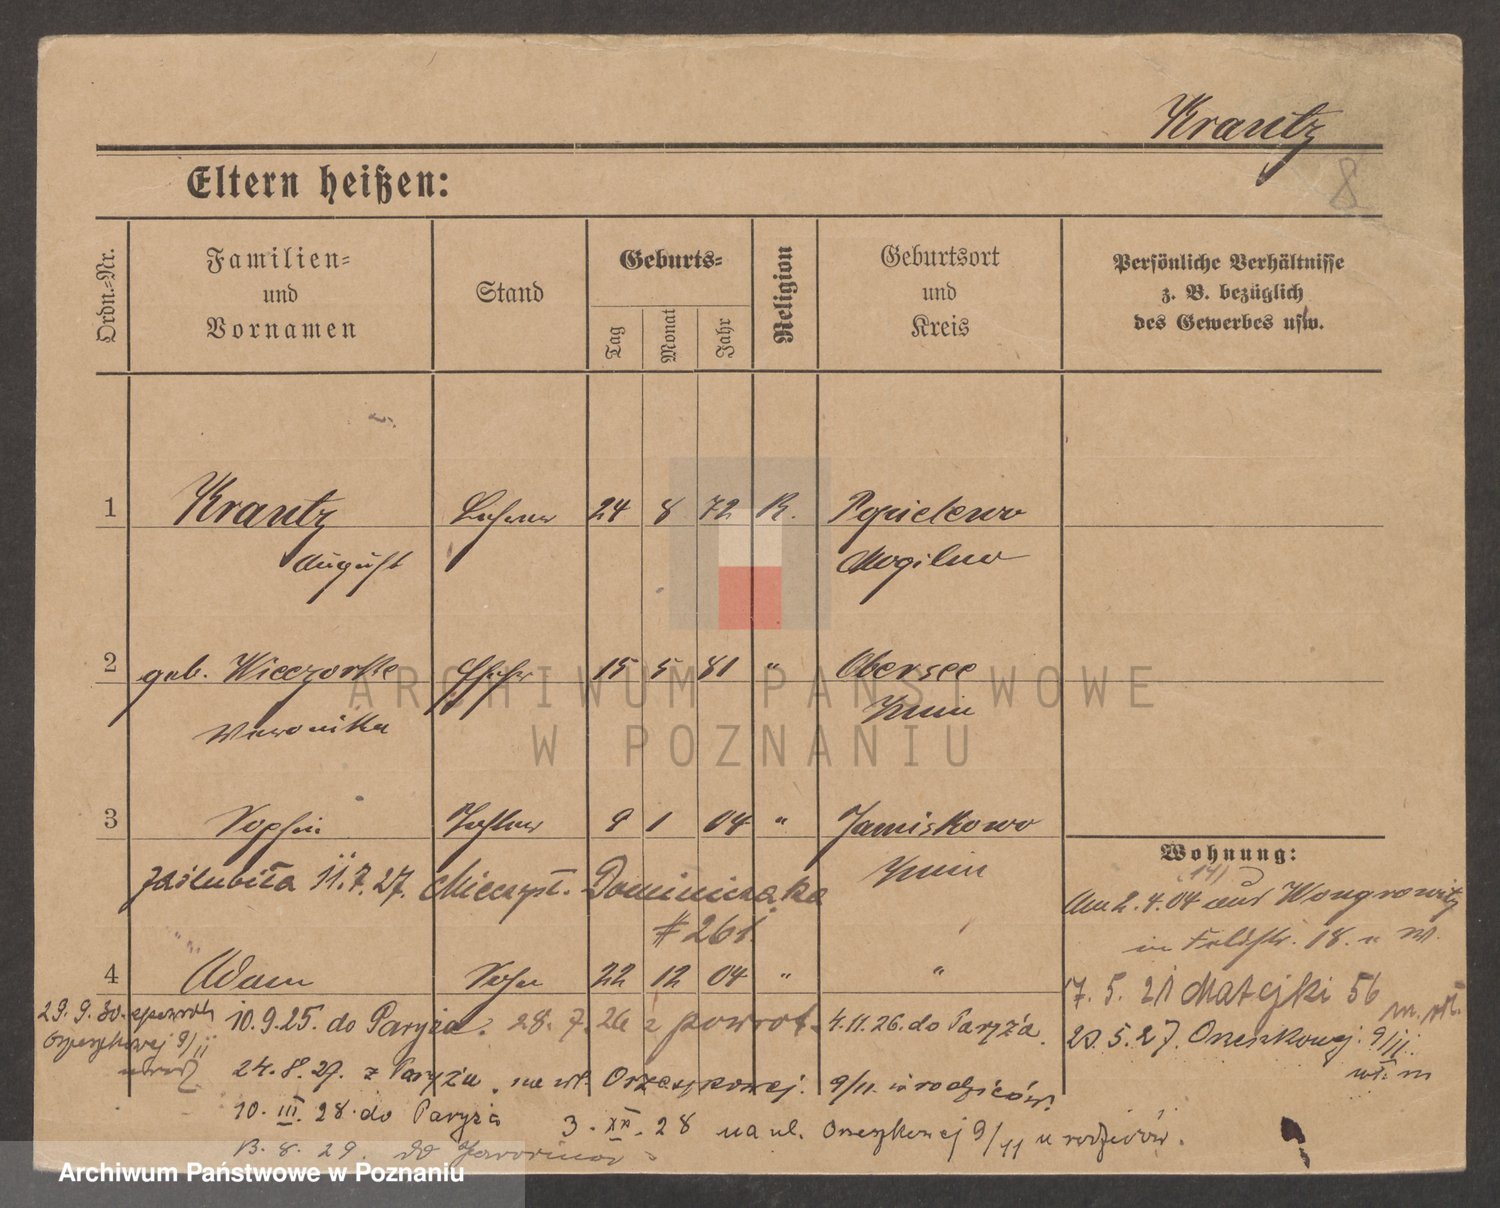 Krantz
8
Eltern heißen:
Ordn.-Nr.
Familien-
und
Vornamen
Stand
Geburts-
Tag
Monat
Jahr
Religion
Geburtsort
und
Kreis
Persönliche Verhältnisse
z. B. bezüglich
des Gewerbes usw.
1 Krantz Lehrer 24 8 72 K. Popielewo
August Mogilno
2 geb. Wieczorke 15 5 81 " Obersee
Weronika Znin
3 Sophie Tochter 9 1 04 " Januskowo
Znin
zaślubiła 11.7.27. Mieczysł. Dominiczaka
# 261.
4 Adam Sohn 22 12 04 " "
Wohnung:
2.4.04 aus Wongrowitz
in Feldstr. 18. n W.
17. 5. 21 Matejki 56
23.5.27. Orzeszkowej 9/11.
29. 9. 30. spowrotn
Orzeszkowej 9/11
10.9.25. do Paryża. 28. 7. 26 z powrot. 4.11.26. do Paryża.
24.8.27. z Paryża na ul. Orzeszkowej. 9/11. u rodziców.
10. III. 28. do Paryża 3. XII. 28 na ul. Orzeszkowej 9/11 u rodziców.
8. 29. do
ARCHIWUM PAŃSTWOWE
W POZNANIU
Archiwum Państwowe w Poznaniu